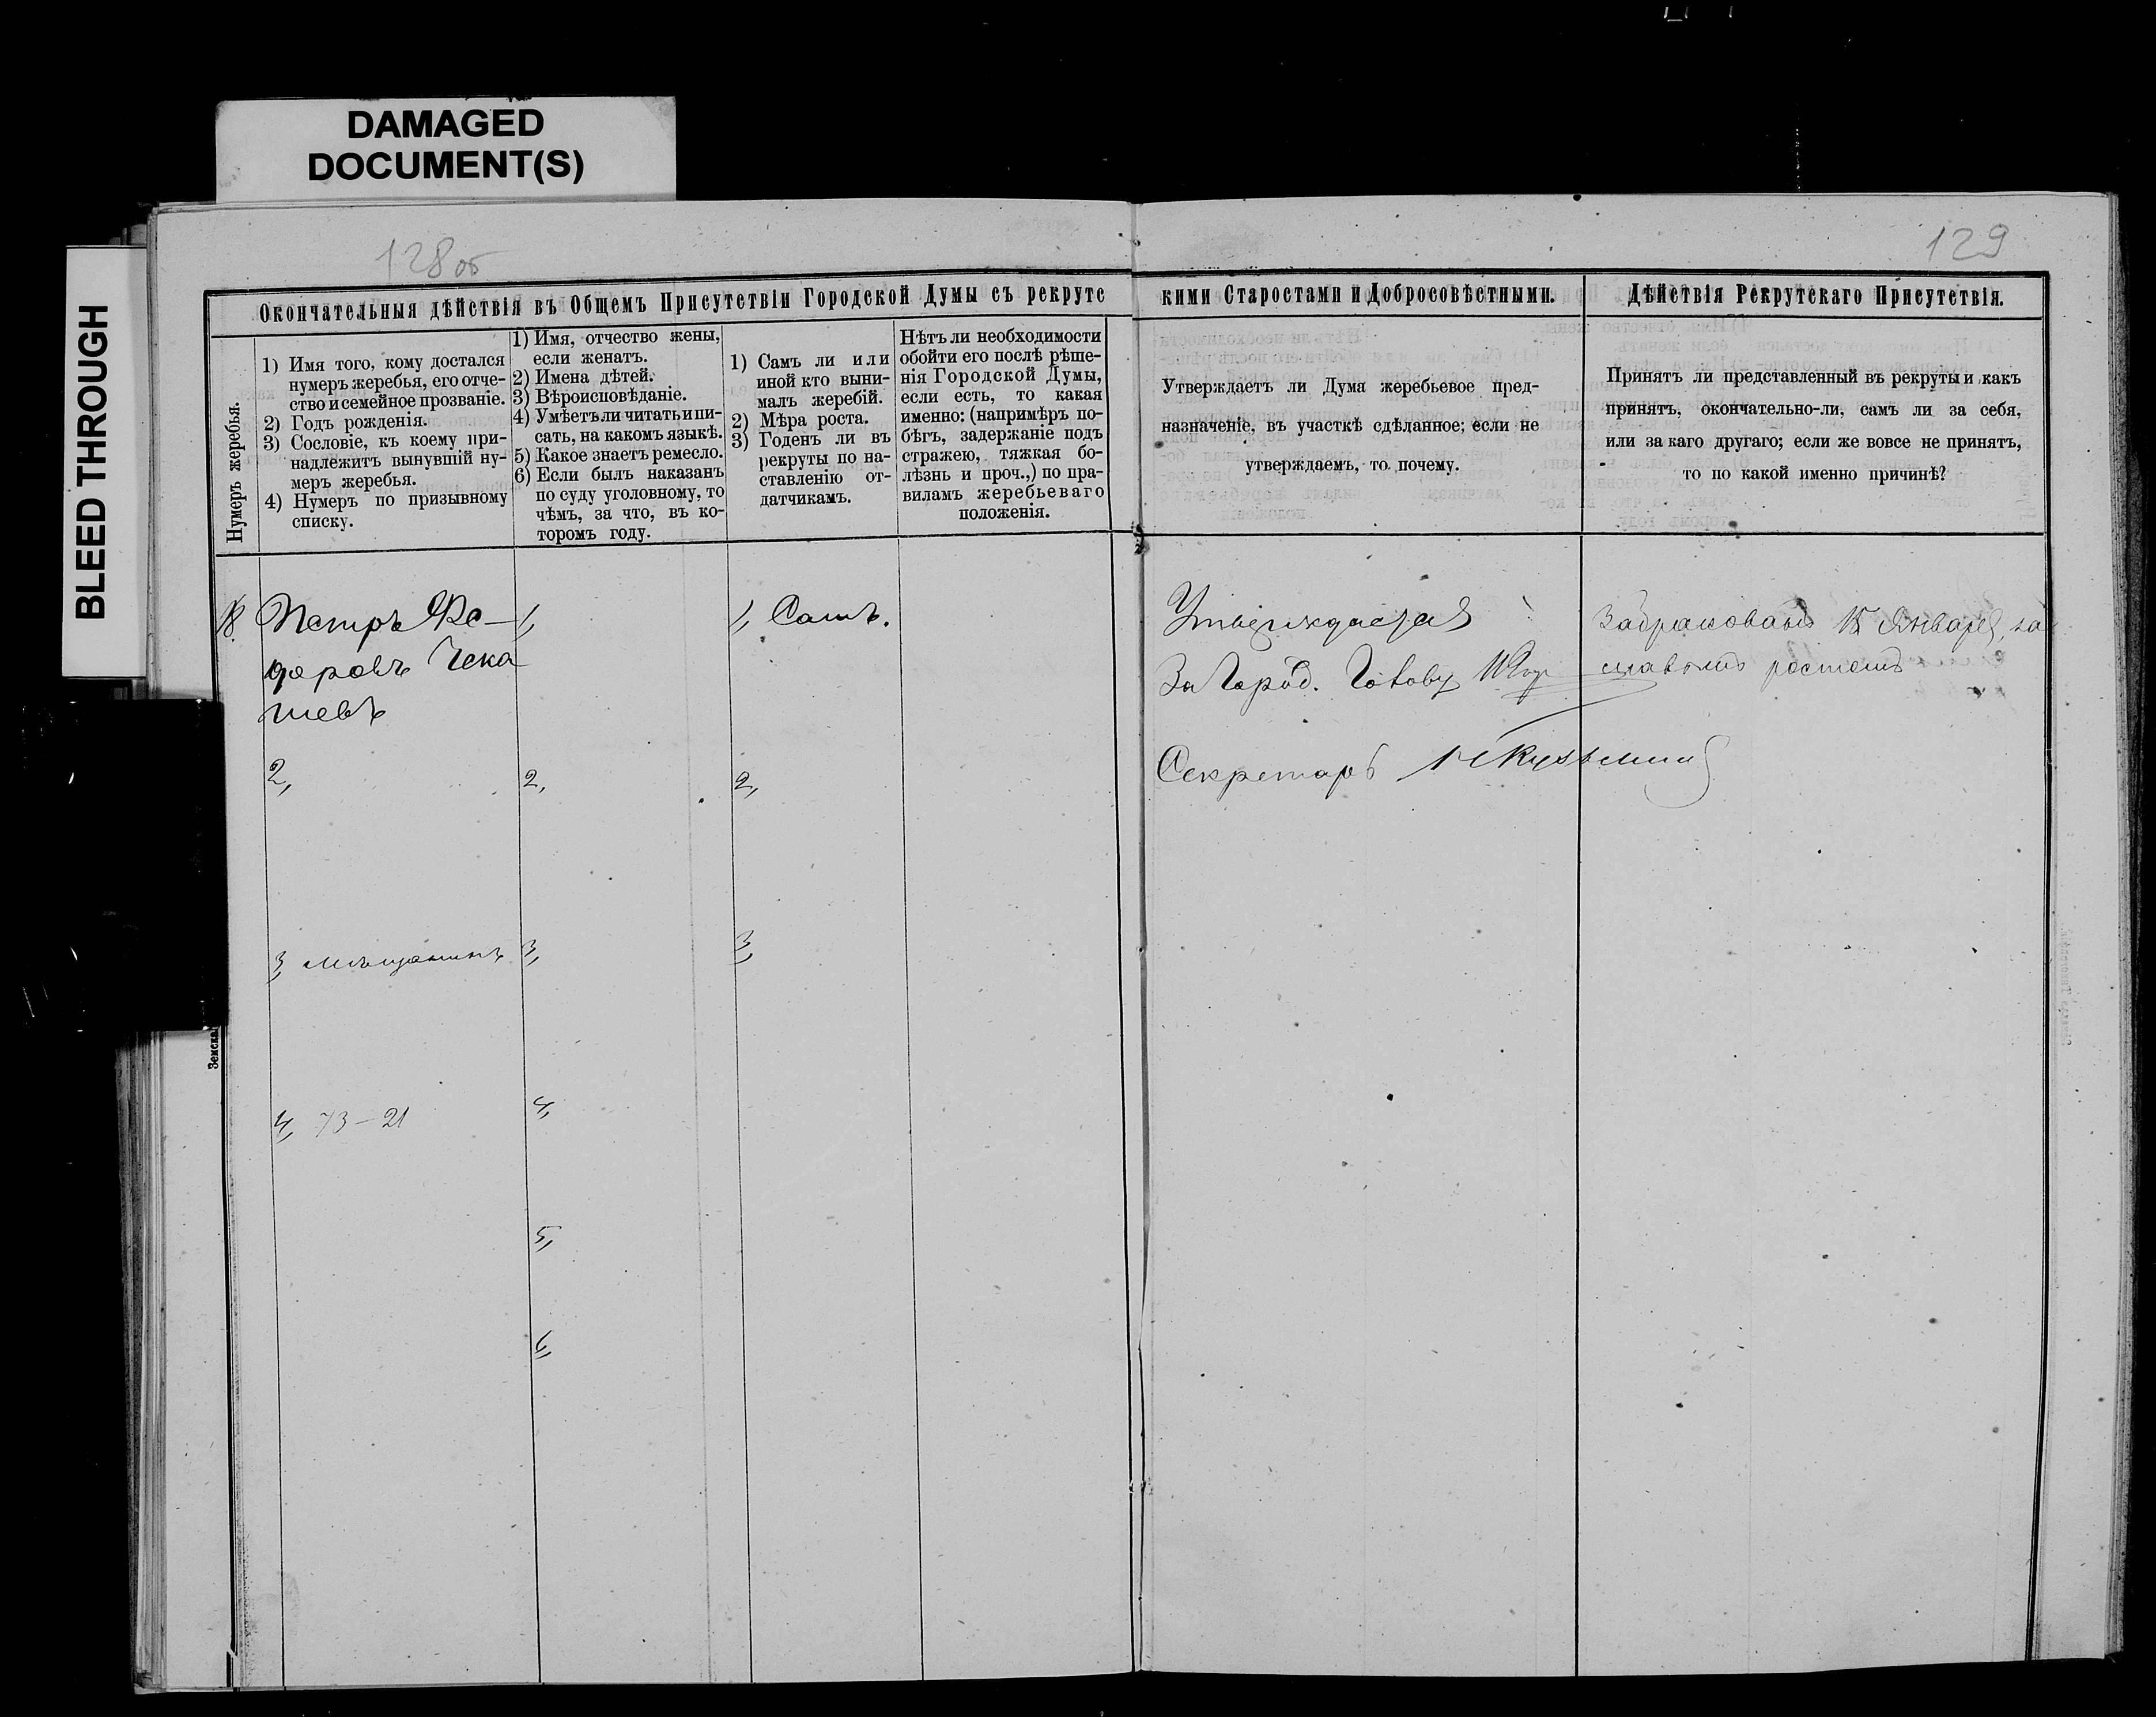 DAMAGED
DOCUMENT(S)
BLEED THROUGH
128 об
129
Окончательныя дѣйствія въ Общемъ Присутствіи Городской Думы съ рекрутс
кими Старостами и Добросовѣстными.
Дѣйствія Рекрутскаго Присутствія.
Нумеръ жеребья.
1) Имя того, кому достался
нумеръ жеребья, его отче-
ство и семейное прозваніе.
2) Годъ рожденія.
3) Сословіе, къ коему при-
надлежитъ вынувшій ну-
меръ жеребья.
4) Нумеръ по призывному
списку.
1) Имя, отчество жены,
если женатъ.
2) Имена дѣтей.
3) Вѣроисповѣданіе.
4) Умѣетъ ли читать и пи-
сать, на какомъ языкѣ.
5) Какое знаетъ ремесло.
6) Если былъ наказанъ
по суду уголовному, то
чѣмъ, за что, въ ко-
торомъ году.
1) Самъ ли или
иной кто выни-
малъ жеребій.
2) Мѣра роста.
3) Годенъ ли въ
рекруты по на-
ставленію от-
датчикамъ.
Нѣтъ ли необходимости
обойти его послѣ рѣше-
нія Городской Думы,
если есть, то какая
именно: (напримѣръ по-
бѣгъ, задержаніе подъ
стражею, тяжкая бо-
лѣзнь и проч.,) по пра-
виламъ жеребьеваго
положенія.
Утверждаетъ ли Дума жеребьевое пред-
назначеніе, въ участкѣ сдѣланное; если не
утверждаемъ, то почему.
Принятъ ли представленный въ рекруты и какъ
принятъ, окончательно-ли, самъ ли за себя,
или за каго другаго; если же вовсе не принятъ,
то по какой именно причинѣ?
18.
Петръ Фе-
доровъ Чека
шевъ
2,
3, мѣщанинъ
4, 73-21
1,
2,
3,
4,
5,
6,
1, Самъ.
2,
3,
Утверждается
За Город. Голову
Секретарь Кузьминъ
Забракованъ 18 Января, за
малымъ ростомъ
Земская